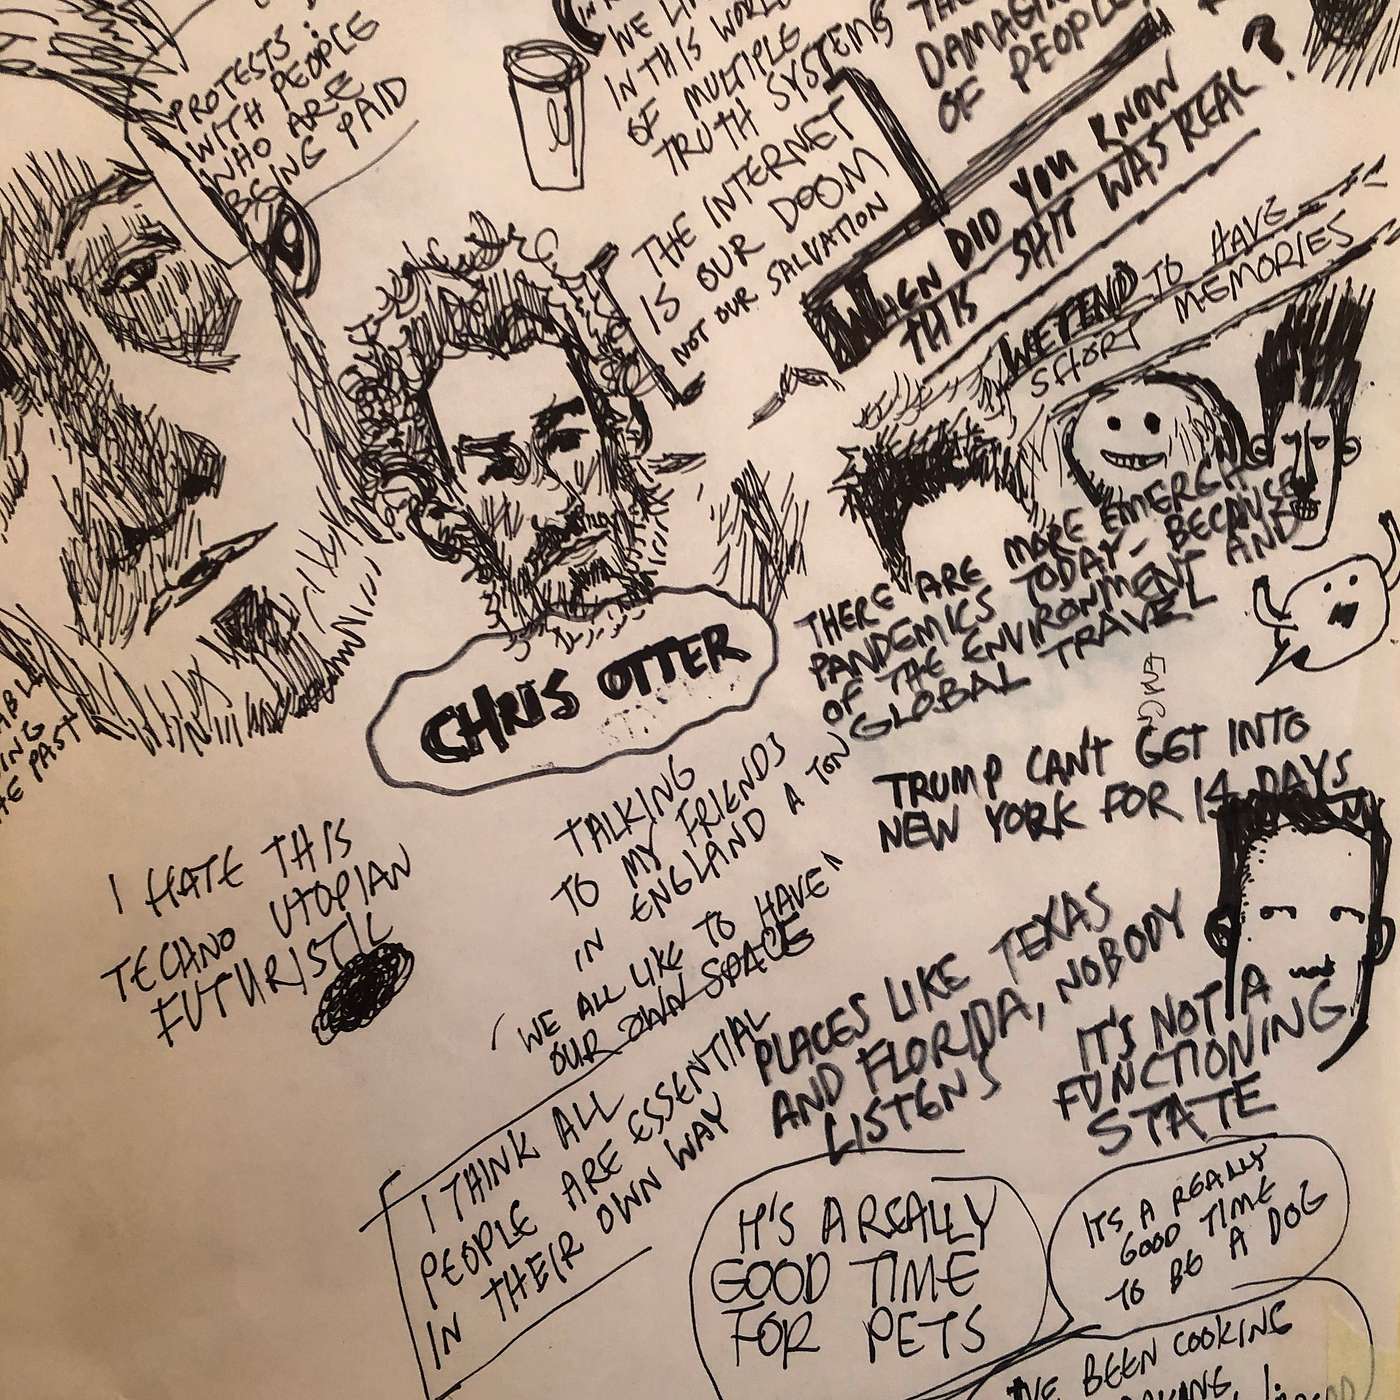 PROTESTS:
WITH PEOPLE
WHO ARE
BEING PAID
IN THIS WORLD
OF MULTIPLE
TRUTH SYSTEMS
THE INTERNET
IS OUR DOOM
NOT OUR SALVATION
DAMAGING
OF PEOPLE
WHEN DID YOU KNOW
THIS SHIT WAS REAL?
WE TEND TO HAVE
SHORT MEMORIES
CHRIS OTTER
THERE ARE MORE EMERGING
PANDEMICS TODAY - BECAUSE
OF THE ENVIRONMENT AND
GLOBAL TRAVEL
TRUMP CAN'T GET INTO
NEW YORK FOR 14 DAYS
THE PAST
I HATE THIS
TECHNO UTOPIAN
FUTURISTIC
TALKING
TO MY FRIENDS
IN ENGLAND A TON
"WE ALL LIKE TO HAVE"
OUR OWN SPACE
PLACES LIKE TEXAS
AND FLORIDA, NOBODY
LISTENS
IT'S NOT A
FUNCTIONING
STATE
I THINK ALL
PEOPLE ARE ESSENTIAL
IN THEIR OWN WAY
IT'S A REALLY
GOOD TIME
FOR PETS
ITS A REALLY
GOOD TIME
TO BE A DOG
I'VE BEEN COOKING